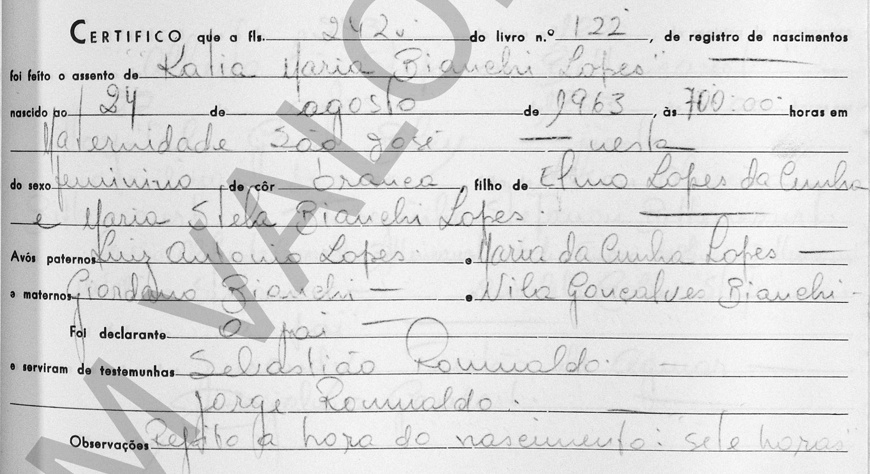 CERTIFICO que a fls. 242v do livro n.º 122, de registro de nascimentos
foi feito o assento de "Katia Maria Bianchi Lopes"
nascido ao 24 de agosto de 1963, às 700:00 horas em
Maternidade São José — nesta
do sexo feminino de côr branca, filho de Elmo Lopes da Cunha
e Maria Stela Bianchi Lopes.
Avós paternos Luiz Antonio Lopes e Maria da Cunha Lopes —
e maternos Giordano Bianchi — e Nila Gonçalves Bianchi -
Foi declarante O pai —
e serviram de testemunhas Sebastião Romualdo.
Jorge Romualdo.
Observações Repito a hora do nascimento: "sete horas"
M VALO